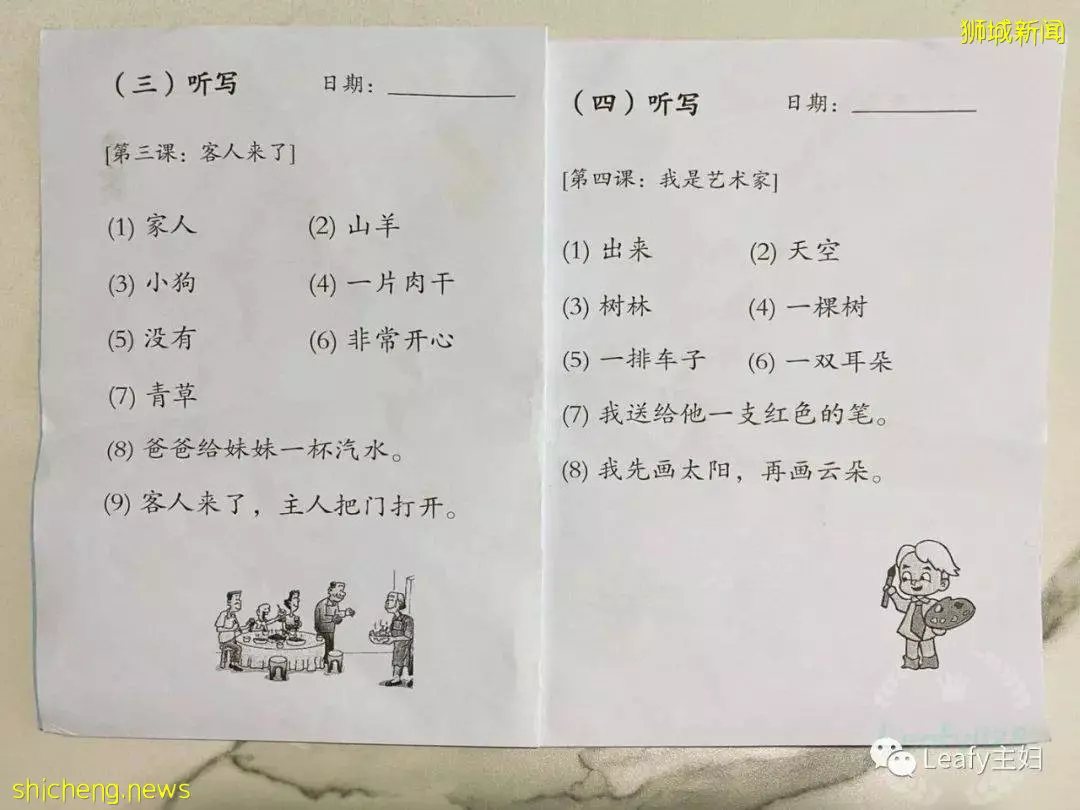 狮城新闻
（三）听写 日期：
[第三课：客人来了]
(1) 家人 (2) 山羊
(3) 小狗 (4) 一片肉干
(5) 没有 (6) 非常开心
(7) 青草
(8) 爸爸给妹妹一杯汽水。
(9) 客人来了，主人把门打开。
（四）听写 日期：
[第四课：我是艺术家]
(1) 出来 (2) 天空
(3) 树林 (4) 一棵树
(5) 一排车子 (6) 一双耳朵
(7) 我送给他一支红色的笔。
(8) 我先画太阳，再画云朵。
Leafy主妇
shicheng.news